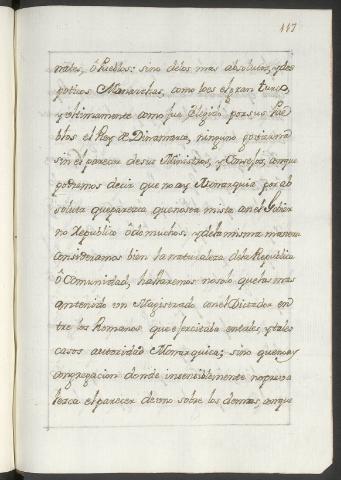 117
nates, ô Pueblos: sino delos mas absolutos, y des
poticos Monarchas, como loes el gran turco,
y últimamente como fue Elegido por sus Pue
blos el Rey de Dinamarca, ninguno govierna
sin el parecer de sus Ministros, y Consejos, conque
podremos decir que no ay Monarquia por ab
soluta que parezca que no sea mista con el Govier
no Republico ô de muchos, y dela misma manera
consideramos bien la naturaleza dela Republica
ô Comunidad, hallaremos no solo que las mas
an tenido un Magistrado con el Dictador en
tre los Romanos que exercitaba en tales, y tales
casos autoridad Monarquica; sino que no ay
congregacion donde insensiblemente no preva
lezca el parecer de uno sobre los demas, conque